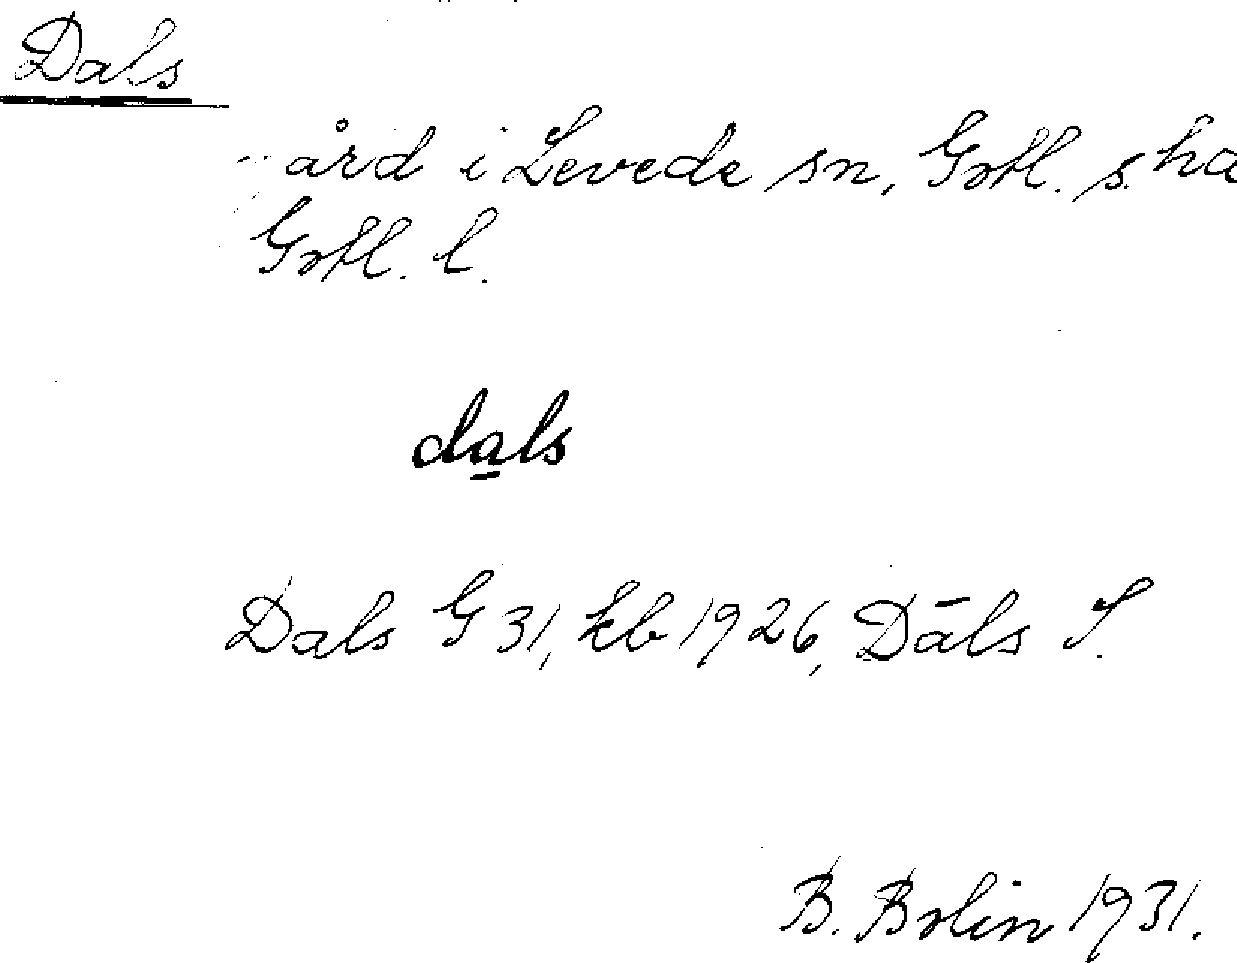 Dals
gård i Levede sn, Gotl. s. ha
Gotl. l.
dals
Dals G 31, kb 1926, Dāls S.
B. Bolin 1931.